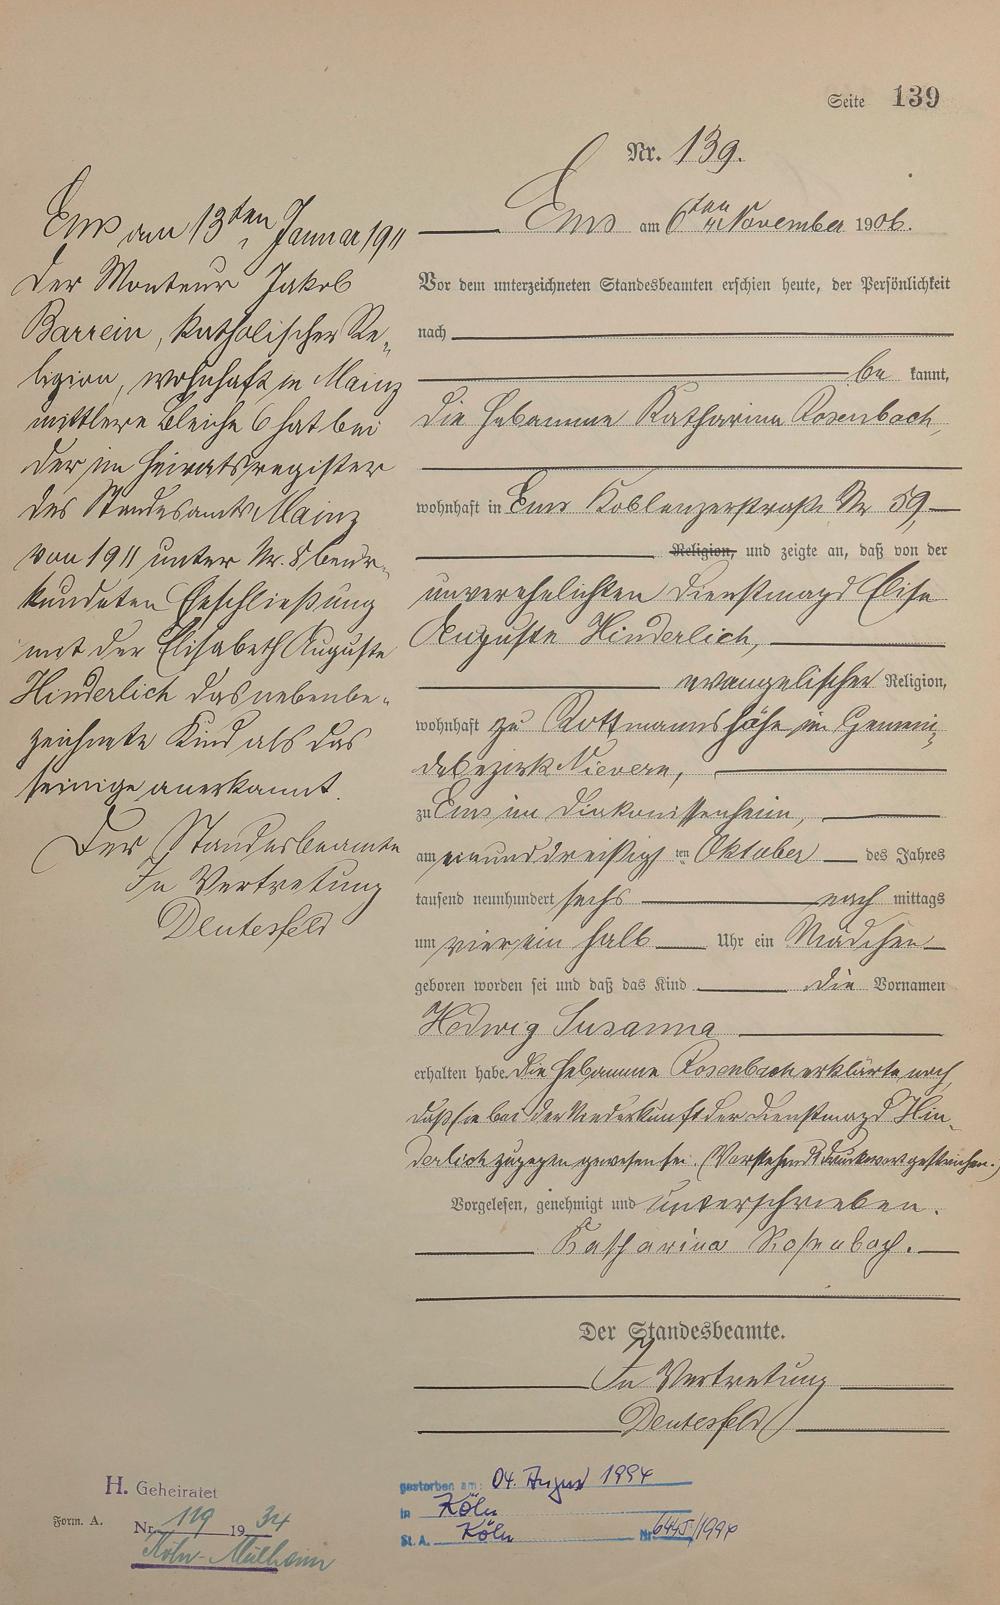 Seite 139
Nr. 139.
Ems am 6ten November 1906.
Vor dem unterzeichneten Standesbeamten erschien heute, der Persönlichkeit
nach
be kannt,
die Hebamme Katharina Rosenbach,
wohnhaft in Ems Koblenzerstraße Nr 59,
Religion, und zeigte an, daß von der
unverehelichten Dienstmagd Elise
Auguste Hinderlich,
evangelischer Religion,
wohnhaft zu Rottmannshöhe im Gemein-
debezirk Nievern,
zu Ems im Diakonissenheim,
am einunddreißigsten Oktober des Jahres
tausend neunhundert sechs nach mittags
um vierein halb Uhr ein Mädchen
geboren worden sei und daß das Kind die Vornamen
Hedwig Susanna
erhalten habe. Die Hebamme Rosenbach erklärte noch,
daß sie bei der Niederkunft der Dienstmagd Hin-
derlich zugegen gewesen sei. (Vorstehend 1 Druckwort gestrichen.)
Vorgelesen, genehmigt und unterschrieben.
Katharina Rosenbach.
Der Standesbeamte.
In Vertretung
Deutesfeld
Ems am 13ten Januar 1911
Der Monteur Jakob
Barrein, katholischer Re-
ligion, wohnhaft in Mainz
mittlere Bleiche 6 hat bei
der im Heiratsregister
des Standesamts Mainz
von 1911 unter Nr. 8 beur-
kundeten Eheschließung
mit der Elisabeth Auguste
Hinderlich das nebenbe-
zeichnete Kind als das
seinige anerkannt.
Der Standesbeamte
In Vertretung
Deutesfeld
H. Geheiratet
Form. A.
Nr. 119 1934
Köln-Mülheim
gestorben am: 04. August 1994
in Köln
St. A. Köln Nr. /1994